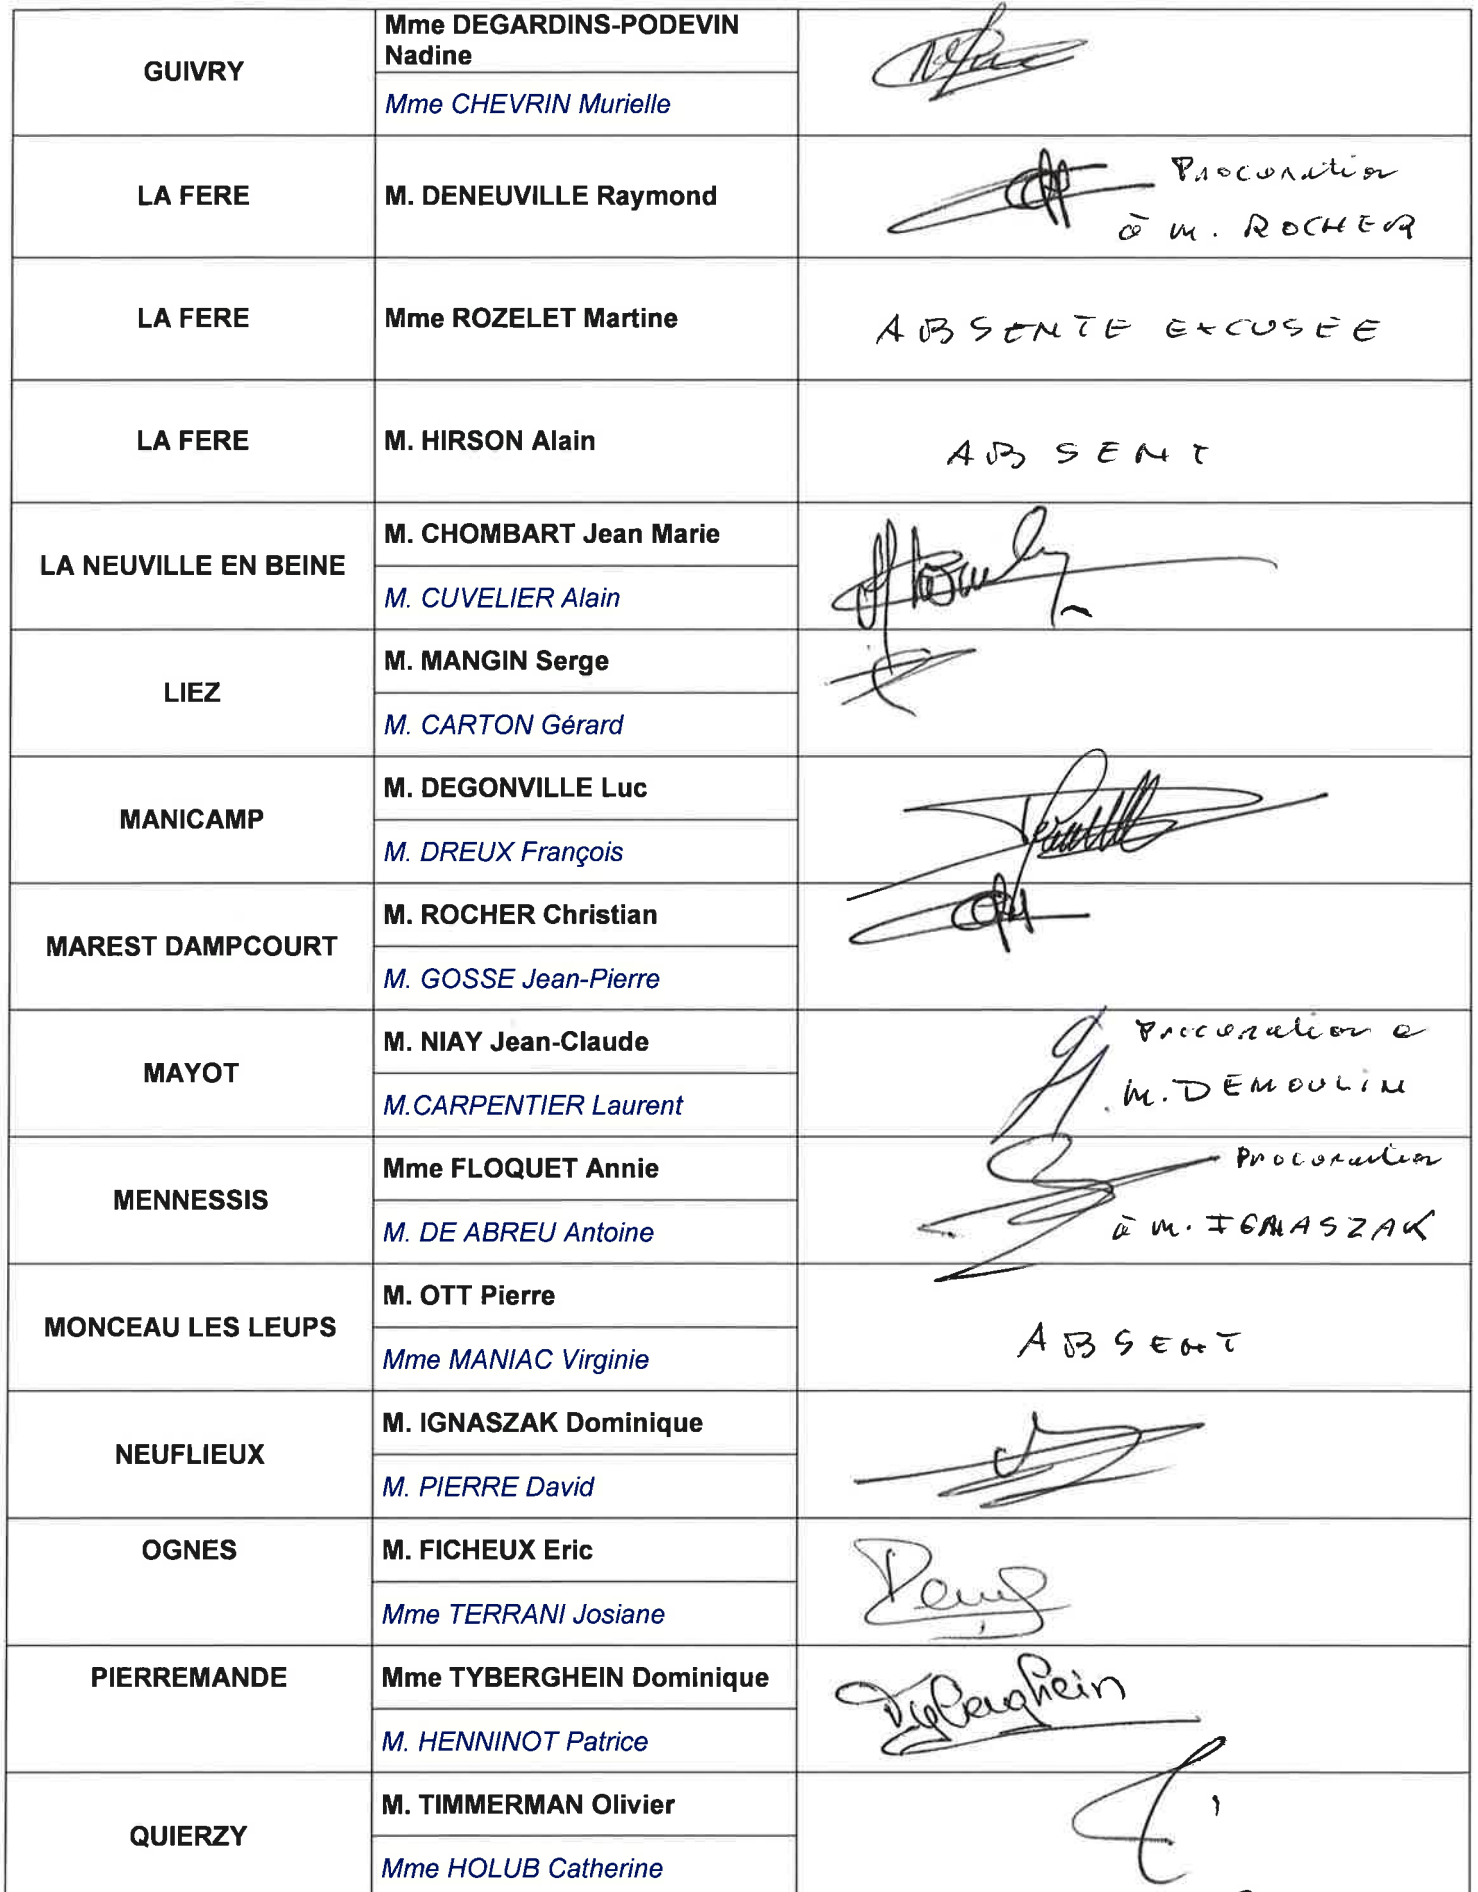 GUIVRY
Mme DEGARDINS-PODEVIN
Nadine
Mme CHEVRIN Murielle
LA FERE
M. DENEUVILLE Raymond
Procuration
à M. ROCHER
LA FERE
Mme ROZELET Martine
ABSENTE EXCUSEE
LA FERE
M. HIRSON Alain
ABSENT
LA NEUVILLE EN BEINE
M. CHOMBART Jean Marie
M. CUVELIER Alain
LIEZ
M. MANGIN Serge
M. CARTON Gérard
MANICAMP
M. DEGONVILLE Luc
M. DREUX François
MAREST DAMPCOURT
M. ROCHER Christian
M. GOSSE Jean-Pierre
MAYOT
M. NIAY Jean-Claude
M.CARPENTIER Laurent
Procuration a
M. DEMOULIN
MENNESSIS
Mme FLOQUET Annie
M. DE ABREU Antoine
Procuration
à M. IGNASZAK
MONCEAU LES LEUPS
M. OTT Pierre
Mme MANIAC Virginie
ABSENT
NEUFLIEUX
M. IGNASZAK Dominique
M. PIERRE David
OGNES
M. FICHEUX Eric
Mme TERRANI Josiane
PIERREMANDE
Mme TYBERGHEIN Dominique
M. HENNINOT Patrice
Tyberghein
QUIERZY
M. TIMMERMAN Olivier
Mme HOLUB Catherine